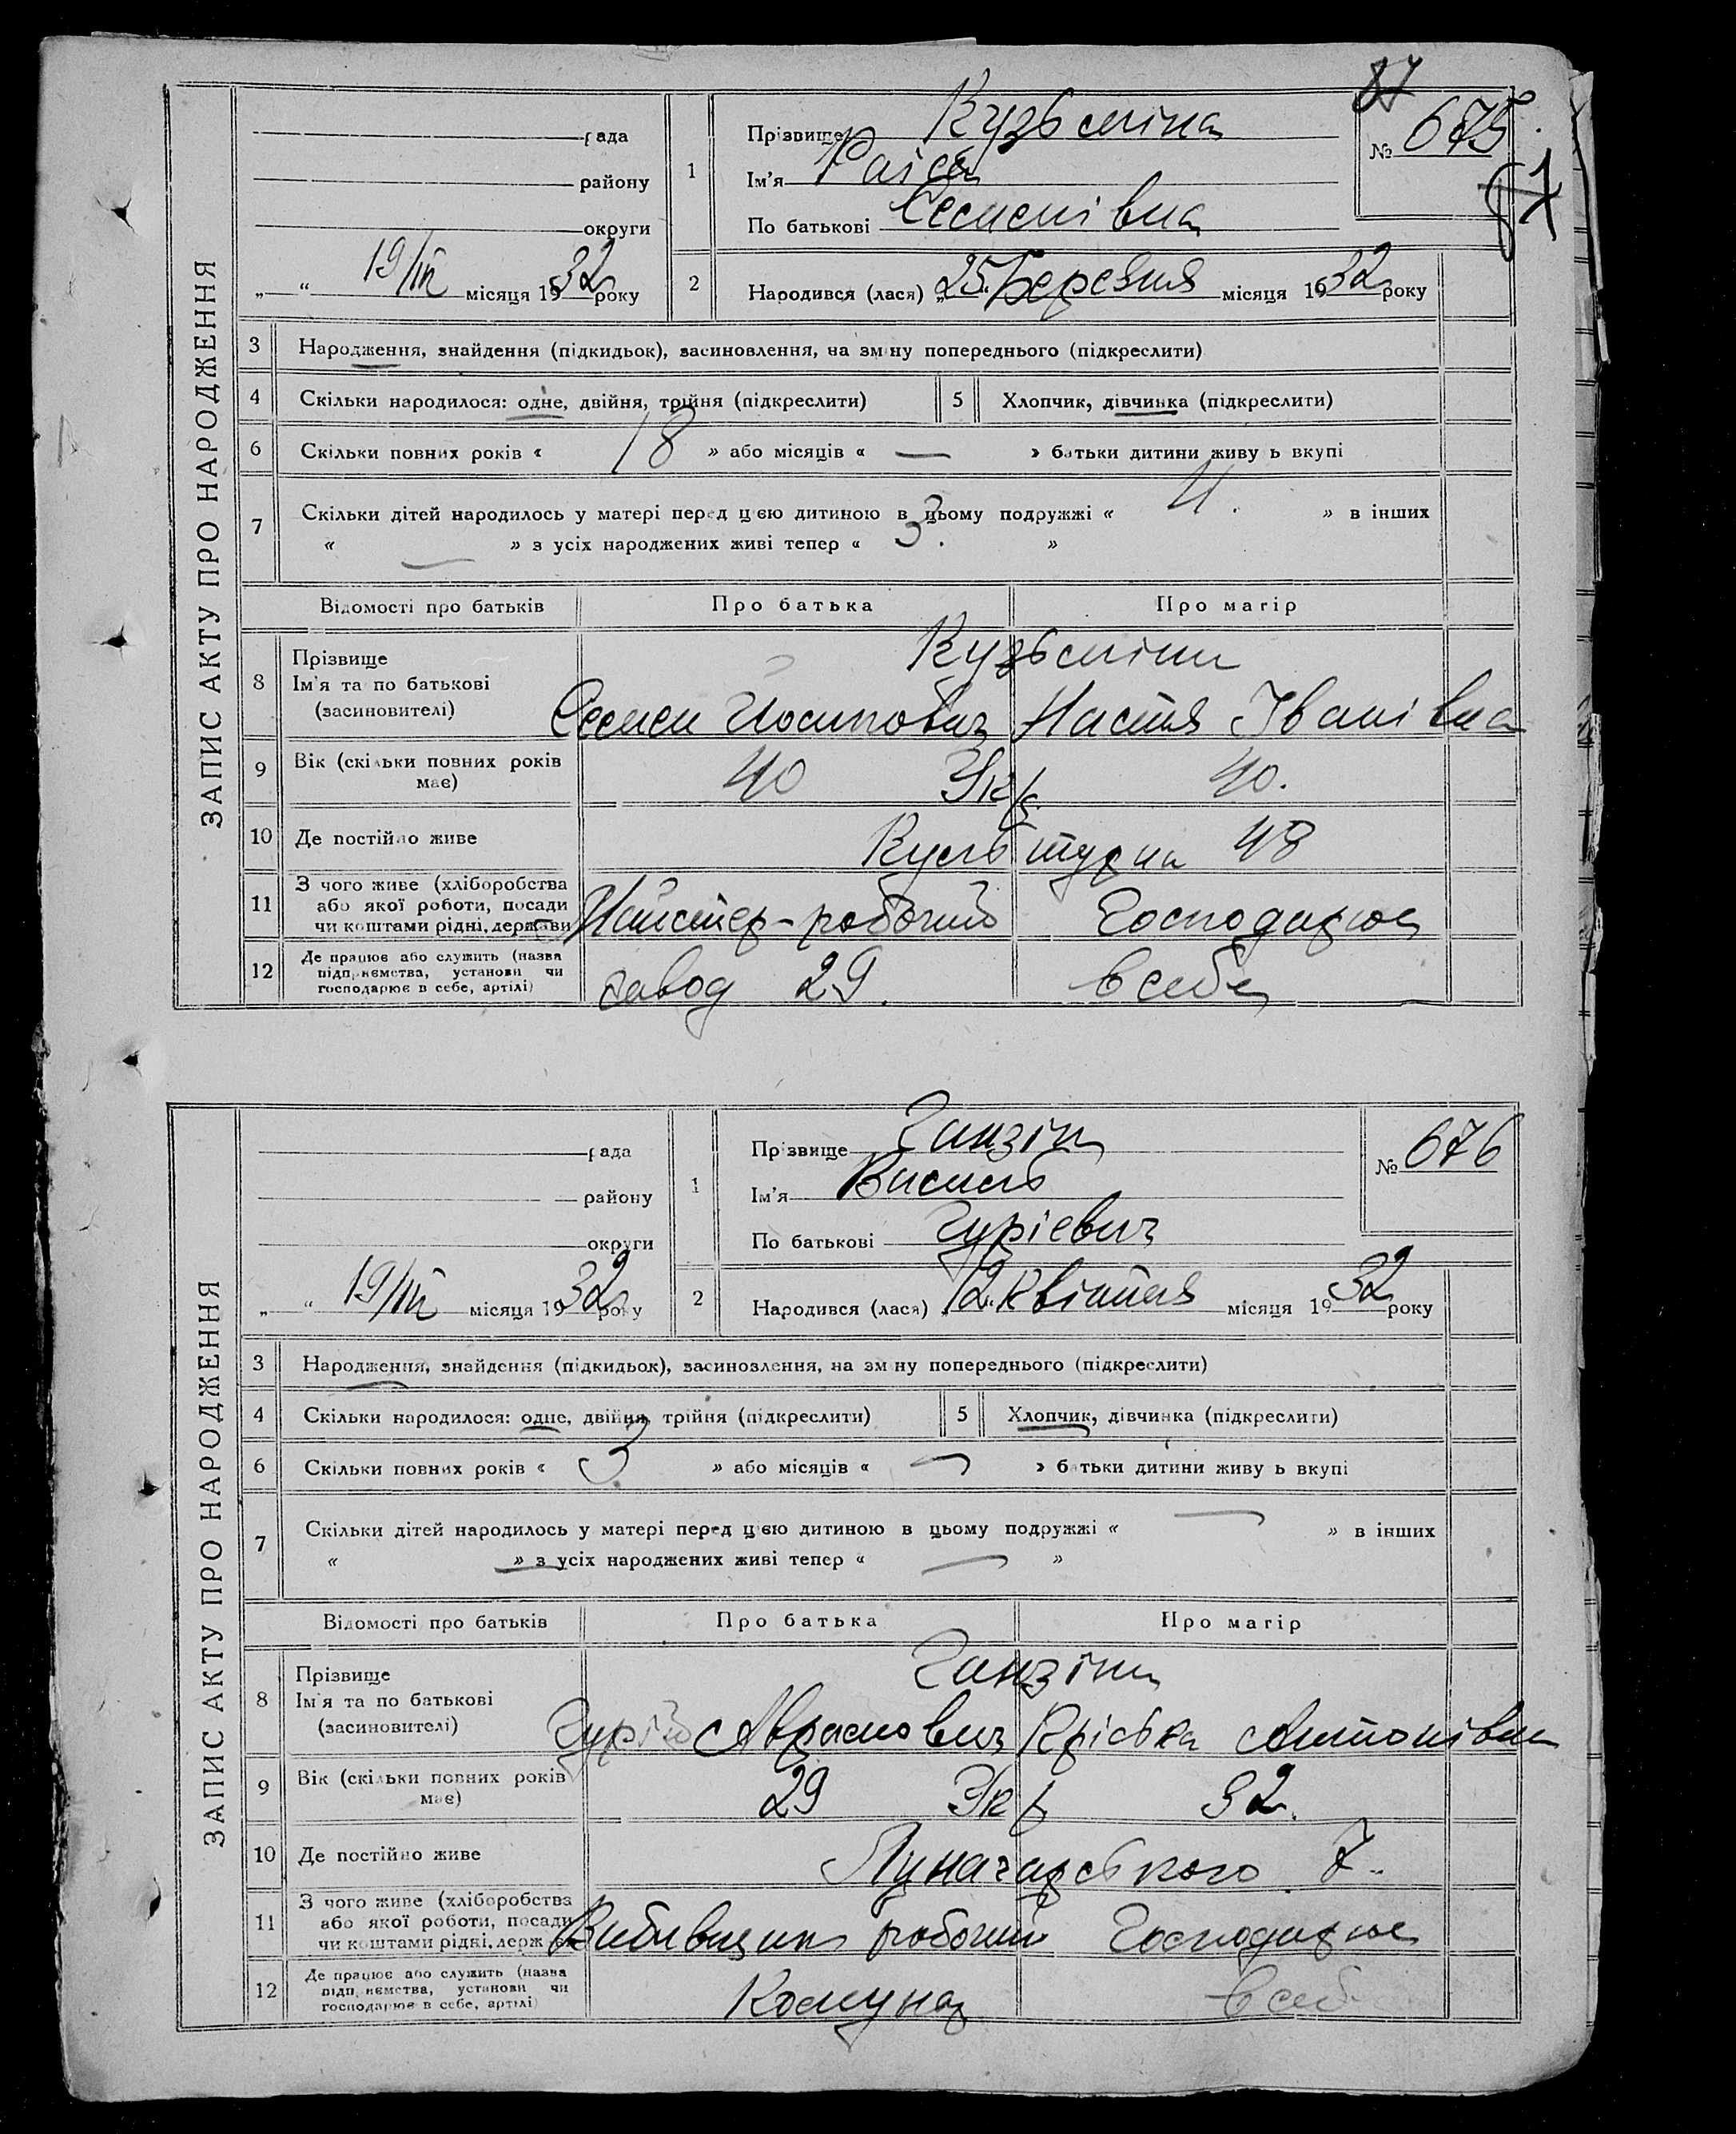 87
ЗАПИС АКТУ ПРО НАРОДЖЕННЯ
рада
району
округи
19/IV місяця 1932 року
1
Прізвище Кузьміна
Ім'я Раіса
По батькові Семенівна
№ 675
87
2
Народився (лася) „25“ Березня місяця 1932 року
3 Народження, знайдення (підкидьок), засиновлення, на зміну попереднього (підкреслити)
4 Скільки народилося: одне, двійня, трійня (підкреслити) 5 Хлопчик, дівчинка (підкреслити)
6 Скільки повних років « 18 » або місяців « — » батьки дитини живуть вкупі
7 Скільки дітей народилось у матері перед цією дитиною в цьому подружжі « 4. » в інших
« — » з усіх народжених живі тепер « 3. »
Відомості про батьків Про батька Про матір
8 Прізвище
Ім'я та по батькові
(засиновителі)
Кузьміни
Семен Йосипович Настя Іванівна
9 Вік (скільки повних років має) 40 Укр 40.
10 Де постійно живе Культурна 48
11 З чого живе (хліборобства
або якої роботи, посади
чи коштами рідні, держави
Майстер-робочий Господарює
12 Де працює або служить (назва
підприємства, установи чи
господарює в себе, артілі)
завод 29. в себе
ЗАПИС АКТУ ПРО НАРОДЖЕННЯ
рада
району
округи
19/IV місяця 1932 року
1
Прізвище Ганзін
Ім'я Василь
По батькові Гурієвич
№ 676
2
Народився (лася) „12“ Квітня місяця 1932 року
3 Народження, знайдення (підкидьок), засиновлення, на зміну попереднього (підкреслити)
4 Скільки народилося: одне, двійня, трійня (підкреслити) 5 Хлопчик, дівчинка (підкреслити)
6 Скільки повних років « 3. » або місяців « — » батьки дитини живуть вкупі
7 Скільки дітей народилось у матері перед цією дитиною в цьому подружжі « — » в інших
« — » з усіх народжених живі тепер « — »
Відомості про батьків Про батька Про матір
8 Прізвище
Ім'я та по батькові
(засиновителі)
Ганзіни
Гурій Абрамович Кріська Антонівна
9 Вік (скільки повних років має) 29 Укр 32.
10 Де постійно живе Луначарського 7.
11 З чого живе (хліборобства
або якої роботи, посади
чи коштами рідні, держави
робочий Господарює
12 Де працює або служить (назва
підприємства, установи чи
господарює в себе, артілі)
Комунар в себе